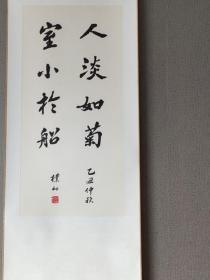 人淡如菊
室小於船
乙丑仲秋